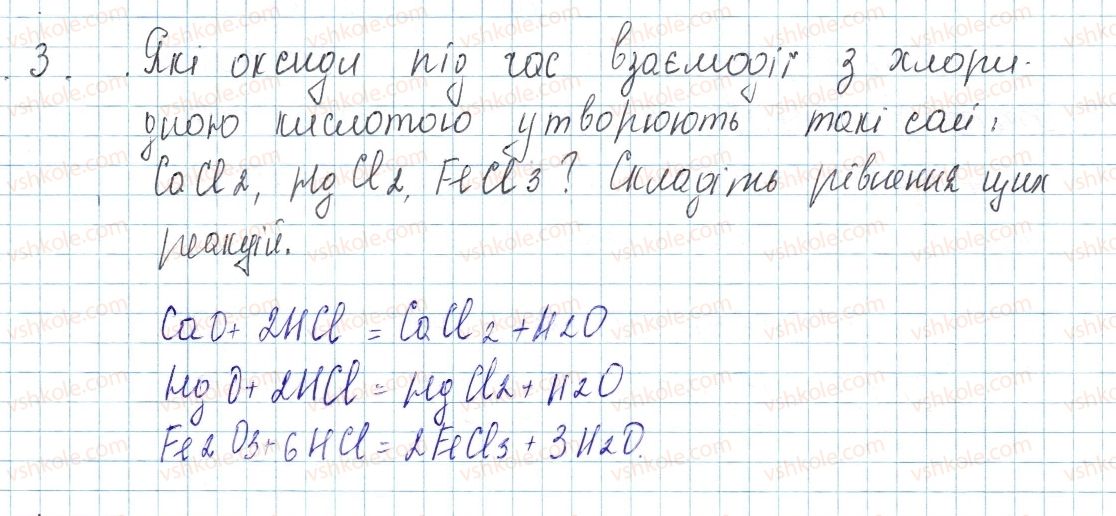 3. Які оксиди під час взаємодії з хлори-
дною кислотою утворюють такі солі:
CaCl2, HgCl2, FeCl3? Складіть рівняння цих
реакцій.
CaO + 2HCl = CaCl2 + H2O
HgO + 2HCl = HgCl2 + H2O
Fe2O3 + 6HCl = 2FeCl3 + 3H2O.
vshkole.com